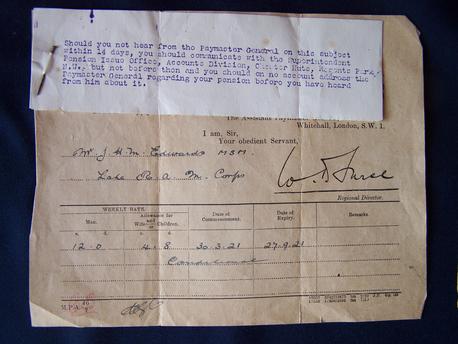 Should you not hear from the Paymaster General on this subject
within 14 days, you should communicate with the Superintendent
Pension Issue Office, Accounts Division, Chester Huts, Regents Park,
N.W. but not before then and you should on no account address the
Paymaster General regarding your pension before you have heard
from him about it.
The Assistant Paymaster
Whitehall, London, S.W.1.
I am, Sir,
Your obedient Servant,
Mr J H M Edwards MSM
Late R. A. M. Corps
Regional Director.
WEEKLY RATE.
Man.
Allowance for
and
Wife Children.
Date of
Commencement.
Date of
Expiry.
Remarks
s. d. s. d.
12.0 4.8 30.3.21 27.9.21
M.P.A. 46